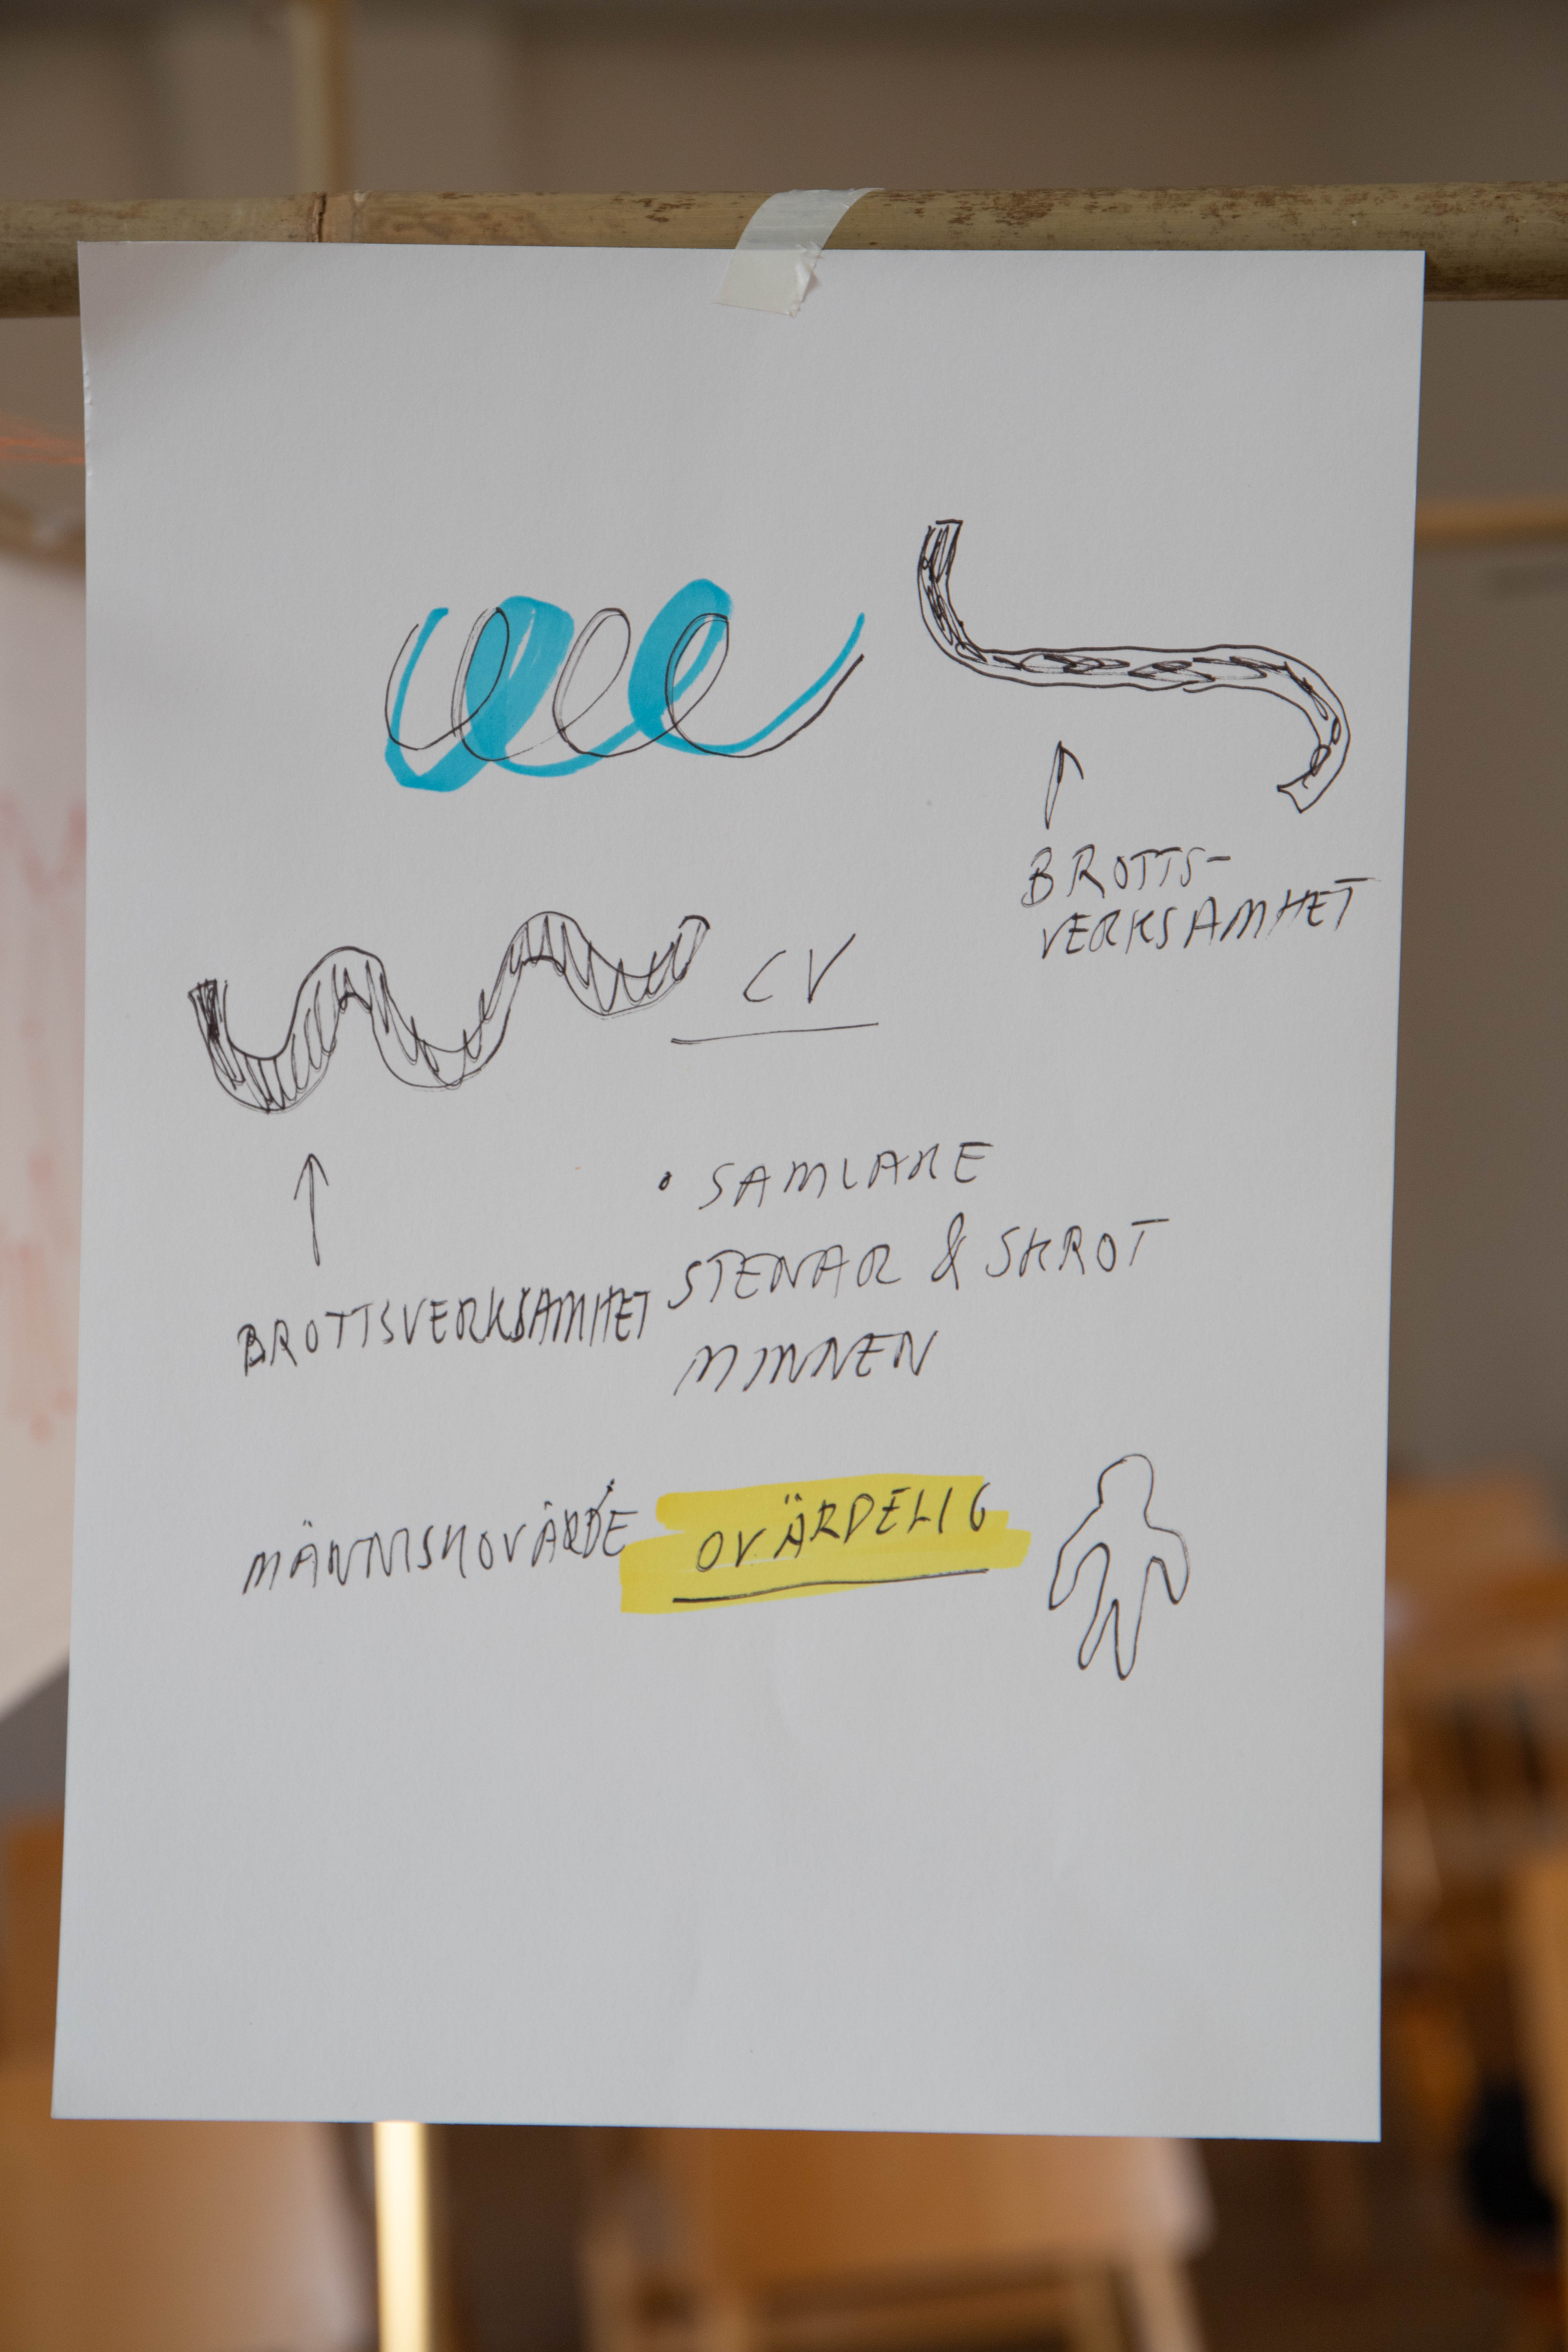 BROTTS-
VERKSAMHET
CV
• SAMLARE
STENAR & SKROT
MINNEN
BROTTSVERKSAMHET
MÄNNISKOVÄRDE OVÄRDELIG